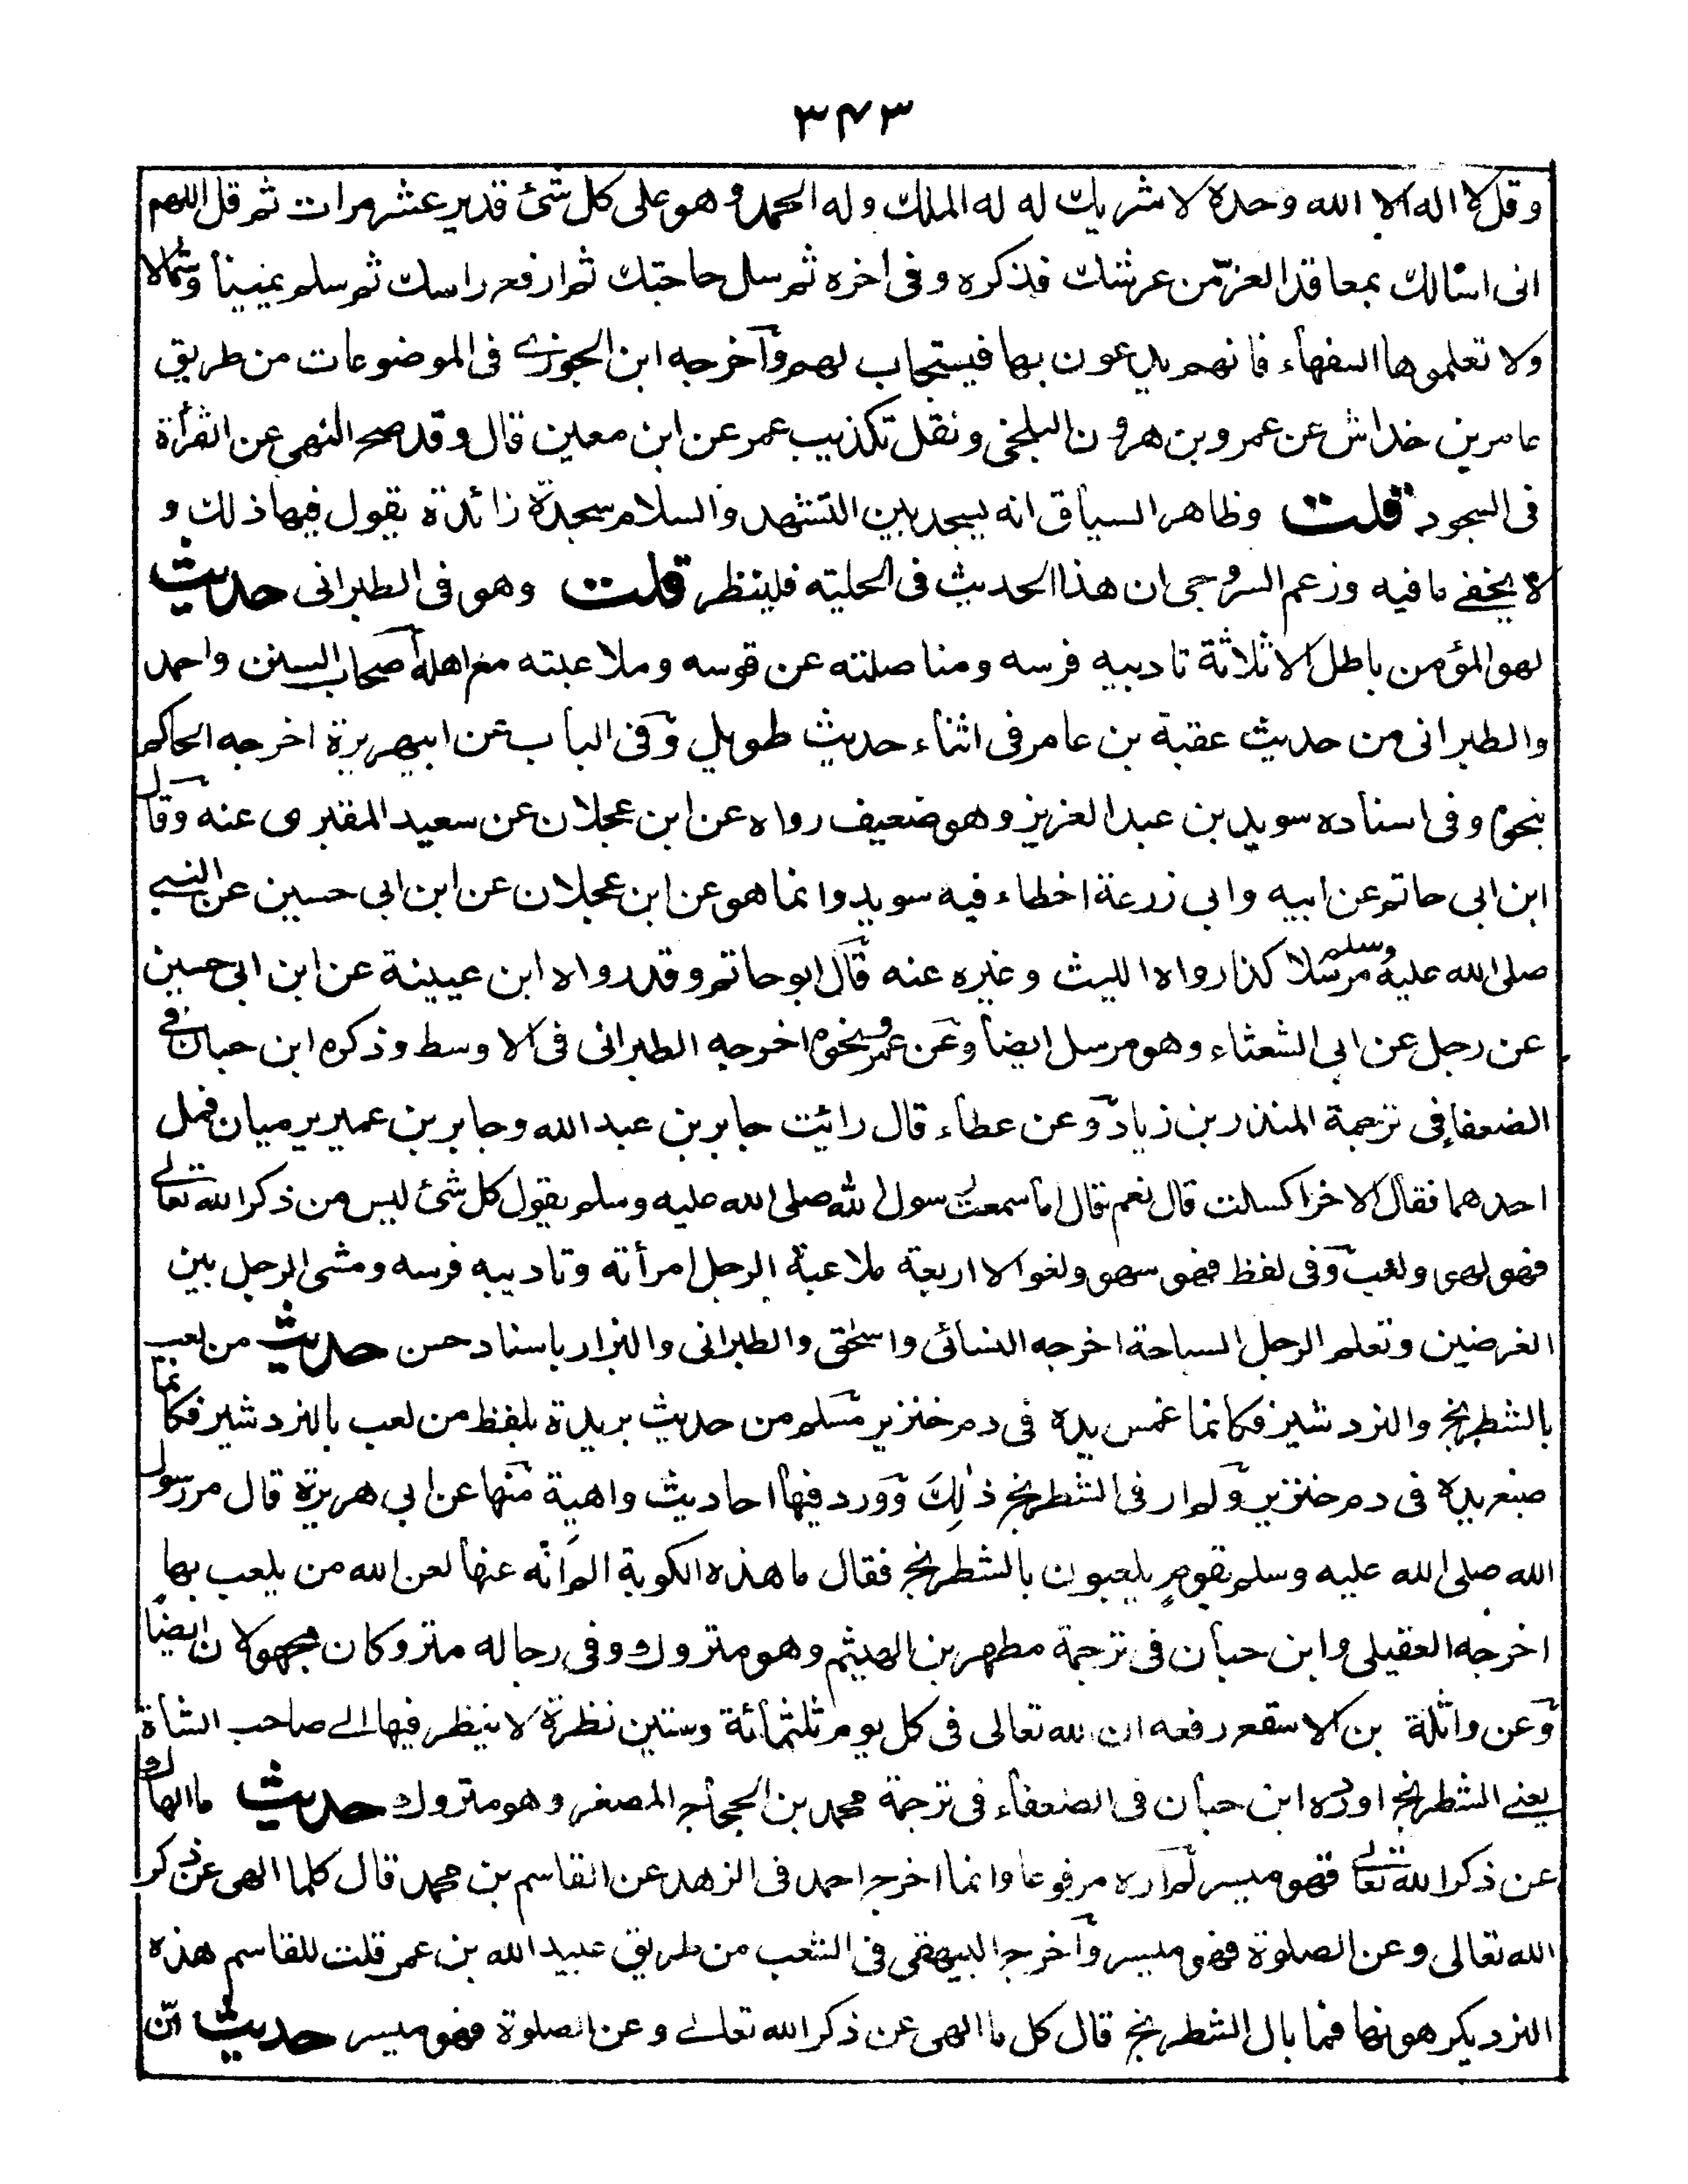 ٣٤٣
وقل لا اله الا الله وحده لا شريك له له الملك وله الحمد وهو على كل شئ قدير عشر مرات ثم قل اللهم
انى اسالك بمعاقد العز من عرشك فذكره وفى اخره ثم سل حاجتك ثم ارفع راسك ثم سلم يمينا وشمالا
ولا تعلموها السفهاء فانهم يدعون بها فيستجاب لهم وآخرجه ابن الجوزے فى الموضوعات من طريق
عامر بن خداش عن عمرو بن هرون البلخى ونقل تكذيب عمر عن ابن معين قال وقد صح النهى عن القرأة
فى السجود قلت وظاهر السياق انه يسجد بين التشهد والسلام سجدة زائدة يقول فيها ذلك و
لا يخفے ما فيه وزعم السروجى ان هذا الحديث فى الحلية فلينظر قلت وهو فى الطبرانى حديث
لهو المؤمن باطل الا ثلاثة تاديبه فرسه ومناصلته عن قوسه وملاعبته مع اهله آصحاب السنن واحمد
والطبرانى من حديث عقبة بن عامر فى اثناء حديث طويل وفى الباب عن ابيهريرة اخرجه الحاكم
نحوه وفى اسناده سويد بن عبد العزيز وهو ضعيف رواه عن ابن عجلان عن سعيد المقبرى عنه وقال
ابن ابى حاتم عن ابيه وابى زرعة اخطاء فيه سويد وانما هو عن ابن عجلان عن ابن ابى حسين عن النبے
صلى الله عليه وسلم مرسلا كذا رواه الليث وغيره عنه قال ابو حاتم وقد رواه ابن عيينة عن ابن ابى حسين
عن رجل عن ابى الشعثاء وهو مرسل ايضا وعن عمر ونحوه اخرجه الطبرانى فى الاوسط وذكره ابن حبان فے
الضعفا فى ترجمة المنذر بن زياد وعن عطاء قال رائيت جابر بن عبد الله وجابر بن عمير يرميان فمل
احدهما فقال الاخر اكسلت قال نعم فقال اما سمعت رسول الله صلى الله عليه وسلم يقول كل شئ ليس من ذكر الله تعالے
فهو لهى ولعب وفى لفظ فهو سهو ولغو الا اربعة ملاعبة الرجل امرأته وتاديبه فرسه ومشى الرجل بين
الغرضين وتعلم الرجل السباحة اخرجه النسائى واسحٰق والطبرانى والبزار باسناد حسن حديث من لعب
بالشطرنج والنرد شير فكانما غمس يده فى دم خنزير مسلم من حديث بريدة بلفظ من لعب بالنرد شير فكانما
صبغ يده فى دم خنزير ولم ار فى الشطرنج ذلك وورد فيها احاديث واهية منها عن ابى هريرة قال مر رسول
الله صلى الله عليه وسلم بقوم يلعبون بالشطرنج فقال ما هذه الكوبة الم انه عنها لعن الله من يلعب بها
اخرجه العقيلى وابن حبان فى ترجمة مطهر بن الهيثم وهو متروك وفى رجاله متروكان مجهولان ايضًا
وعن واثلة بن الاسقع رفعه ان لله تعالى فى كل يوم ثلثمائة وستين نظرة لا ينظر فيها الے صاحب الشاة
يعنے الشطرنج اورده ابن حبان فى الضعفاء فى ترجمة محمد بن الحجاج المصغر وهو متروك حديث ما الهاك
عن ذكر الله تعالے فهو ميسر لم اره مرفوعا وانما اخرج احمد فى الزهد عن القاسم بن محمد قال كلما الهى عن ذكر
الله تعالى وعن الصلوة فهو ميسر وآخرج البيهقى فى الشعب من طريق عبيد الله بن عمر قلت للقاسم هذه
النرد يكرهونها فما بال الشطرنج قال كل ما الهى عن ذكر الله تعالے وعن الصلوة فهو ميسر حديث انّ